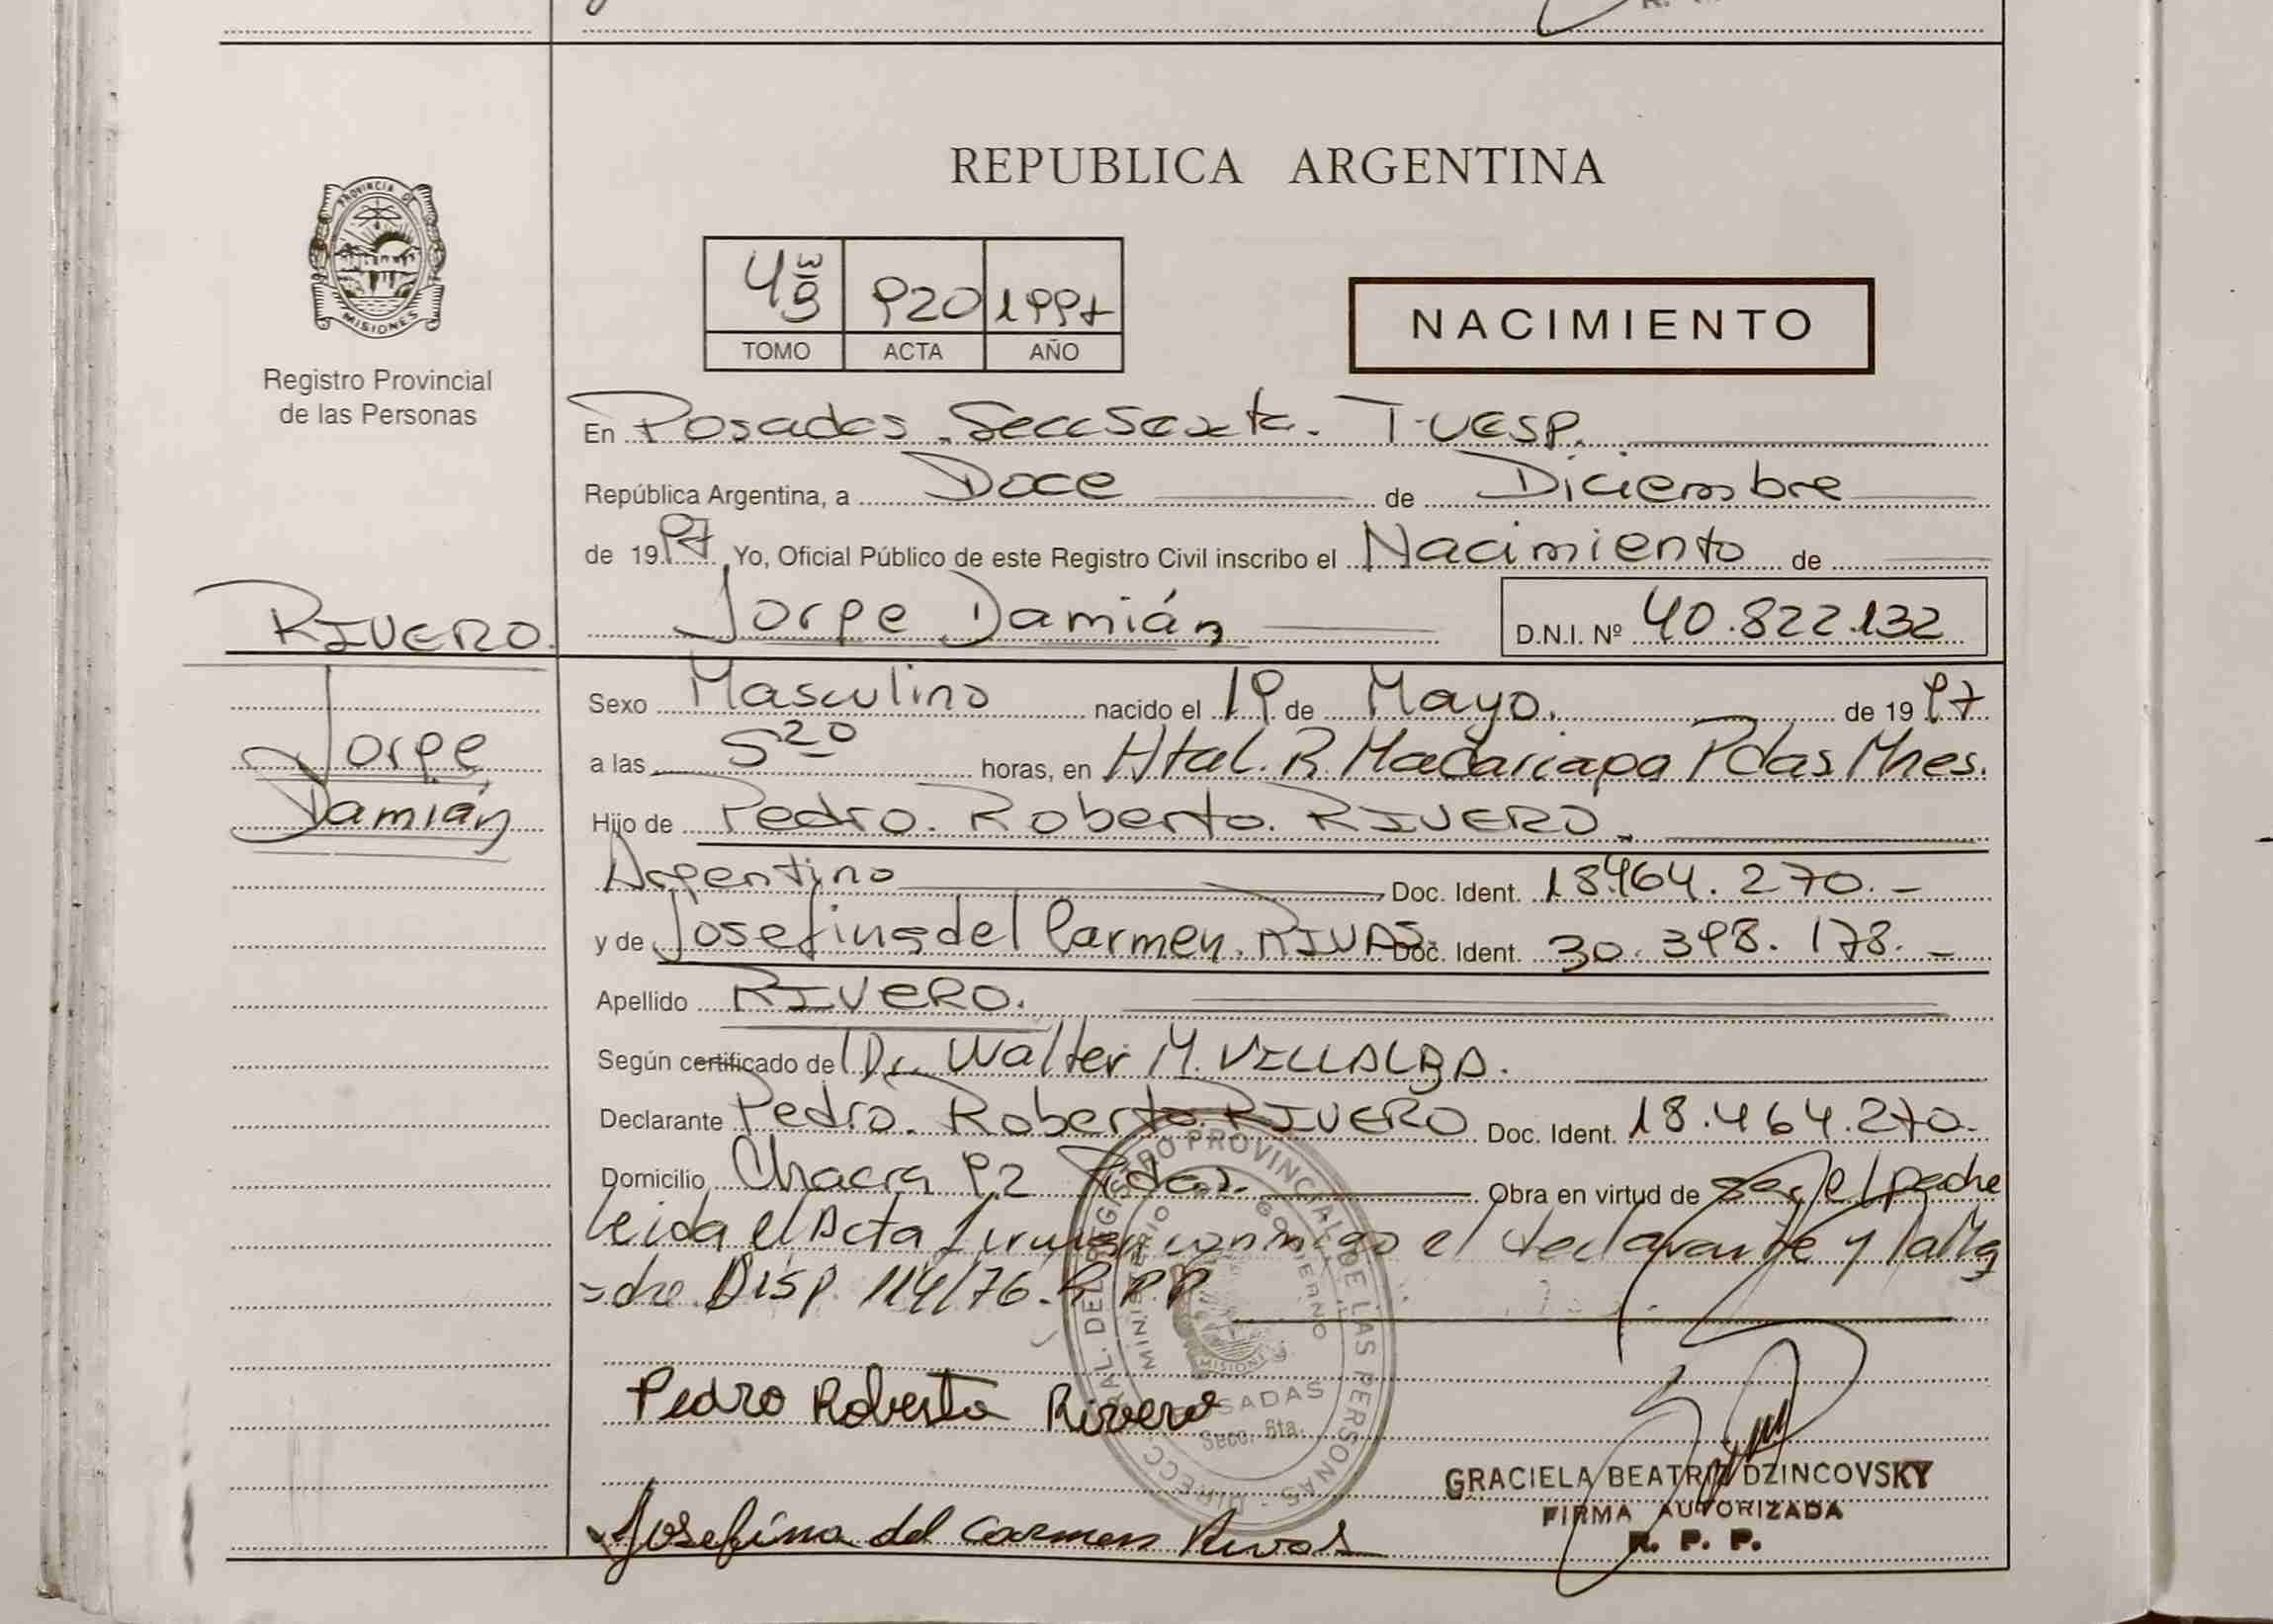 REPUBLICA ARGENTINA
PROVINCIA DE
MISIONES
Registro Provincial
de las Personas
920 1997
TOMO ACTA AÑO
NACIMIENTO
En Posadas. Secc Sexta. T. VESP.
República Argentina, a Doce de Diciembre
de 1997 Yo, Oficial Público de este Registro Civil inscribo el Nacimiento de
RIVERO. Jorge Damián D.N.I. Nº 40.822.132
Jorge
Damián
Sexo Masculino nacido el 19 de Mayo. de 1997
a las 5 20 horas, en Htal. R. Madariaga Pdas Mnes.
Hijo de Pedro. Roberto. RIVERO.
Argentino Doc. Ident. 18.464.270.-
y de Josefina del Carmen. RIVAS. Doc. Ident. 30.398.178.-
Apellido RIVERO.
Según certificado de Dr. Walter M. VILLALBA.
Declarante Pedro. Roberto. RIVERO Doc. Ident. 18.464.270.
Domicilio Chacra 92 Pdas. Obra en virtud de ser el padre
leida el Acta firman conmigo el declarante y la Ma
=dre. Disp. 114/76. R.P.P
Pedro Roberto Rivero
DIRECC. GRAL. DEL REGISTRO PROVINCIAL DE LAS PERSONAS
MINISTERIO GOBIERNO
MISIONES
POSADAS
Secc. 6ta.
GRACIELA BEATRIZ DZINCOVSKY
FIRMA AUTORIZADA
R. P. P.
Josefina del Carmen Rivas